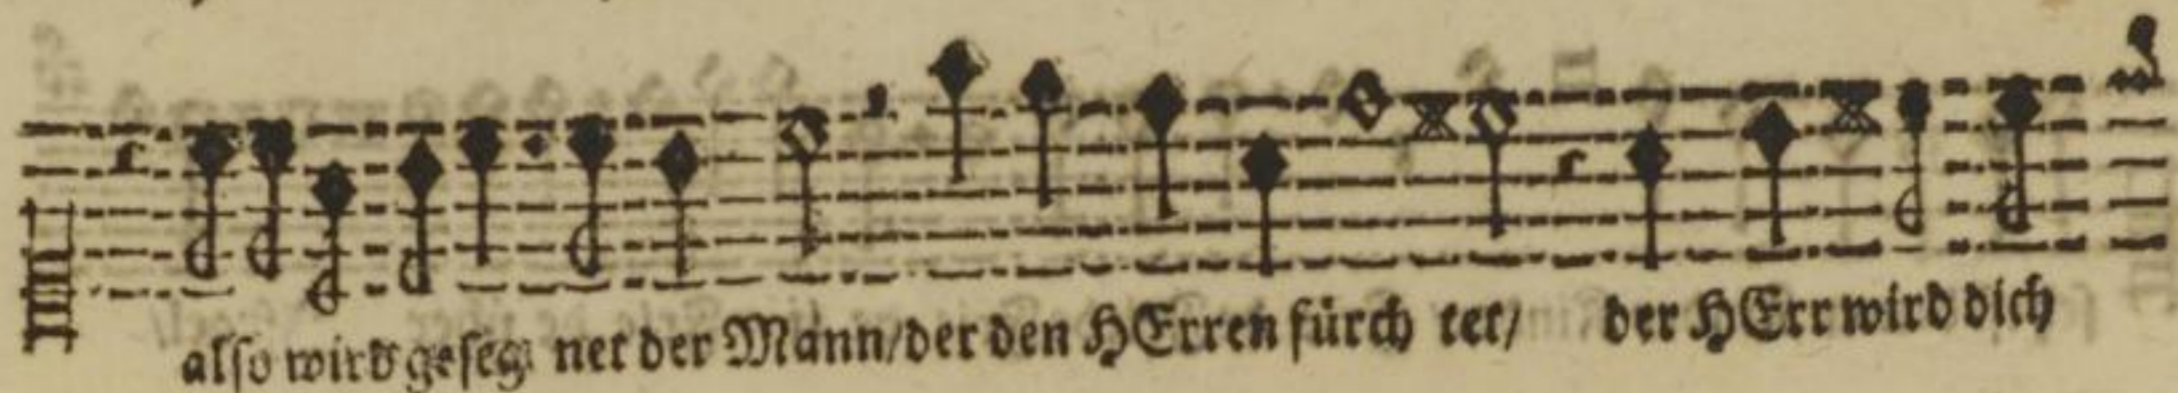 also wird geseg⸗ net der Mann/der den HErren fürch tet/ der HErr wird dich